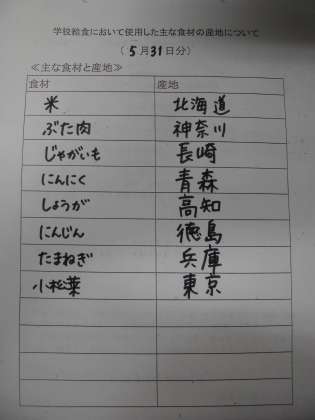 学校給食において使用した主な食材の産地について
(5月31日分)
≪主な食材と産地≫
食材 産地
米 北海道
ぶた肉 神奈川
じゃがいも 長崎
にんにく 青森
しょうが 高知
にんじん 徳島
たまねぎ 兵庫
小松菜 東京